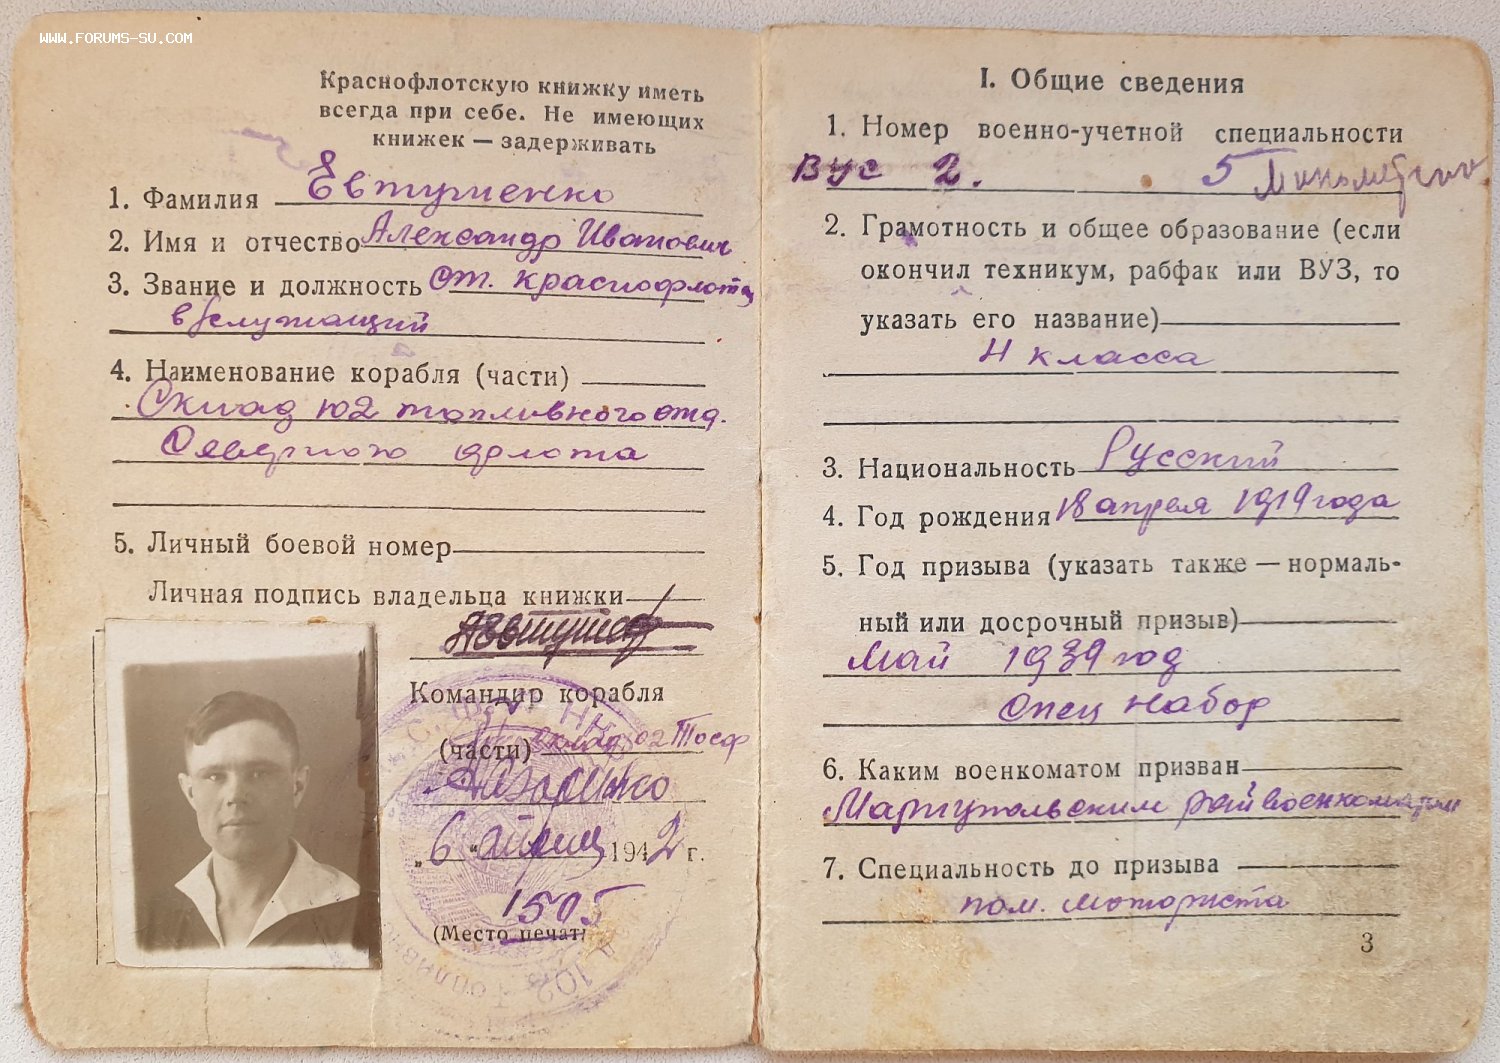 WWW.FORUMS-SU.COM
Краснофлотскую книжку иметь
всегда при себе. Не имеющих
книжек — задерживать
1. Фамилия Евтушенко
2. Имя и отчество Александр Иванович
3. Звание и должность ст. краснофлотец
в/служащий
4. Наименование корабля (части)
Склад 102 топливного отд.
Северного флота
5. Личный боевой номер
Личная подпись владельца книжки
Командир корабля
(части) склад 102 Тосф
"6" апреля 1942 г.
1505
(Место печати)
I. Общие сведения
1. Номер военно-учетной специальности
ВУС 2. 5
2. Грамотность и общее образование (если
окончил техникум, рабфак или ВУЗ, то
указать его название)
4 класса
3. Национальность Русский
4. Год рождения 18 апреля 1919 года
5. Год призыва (указать также — нормаль-
ный или досрочный призыв)
Май 1939 год
Спец набор
6. Каким военкоматом призван
Мариупольским райвоенкоматом
7. Специальность до призыва
пом. моториста
3